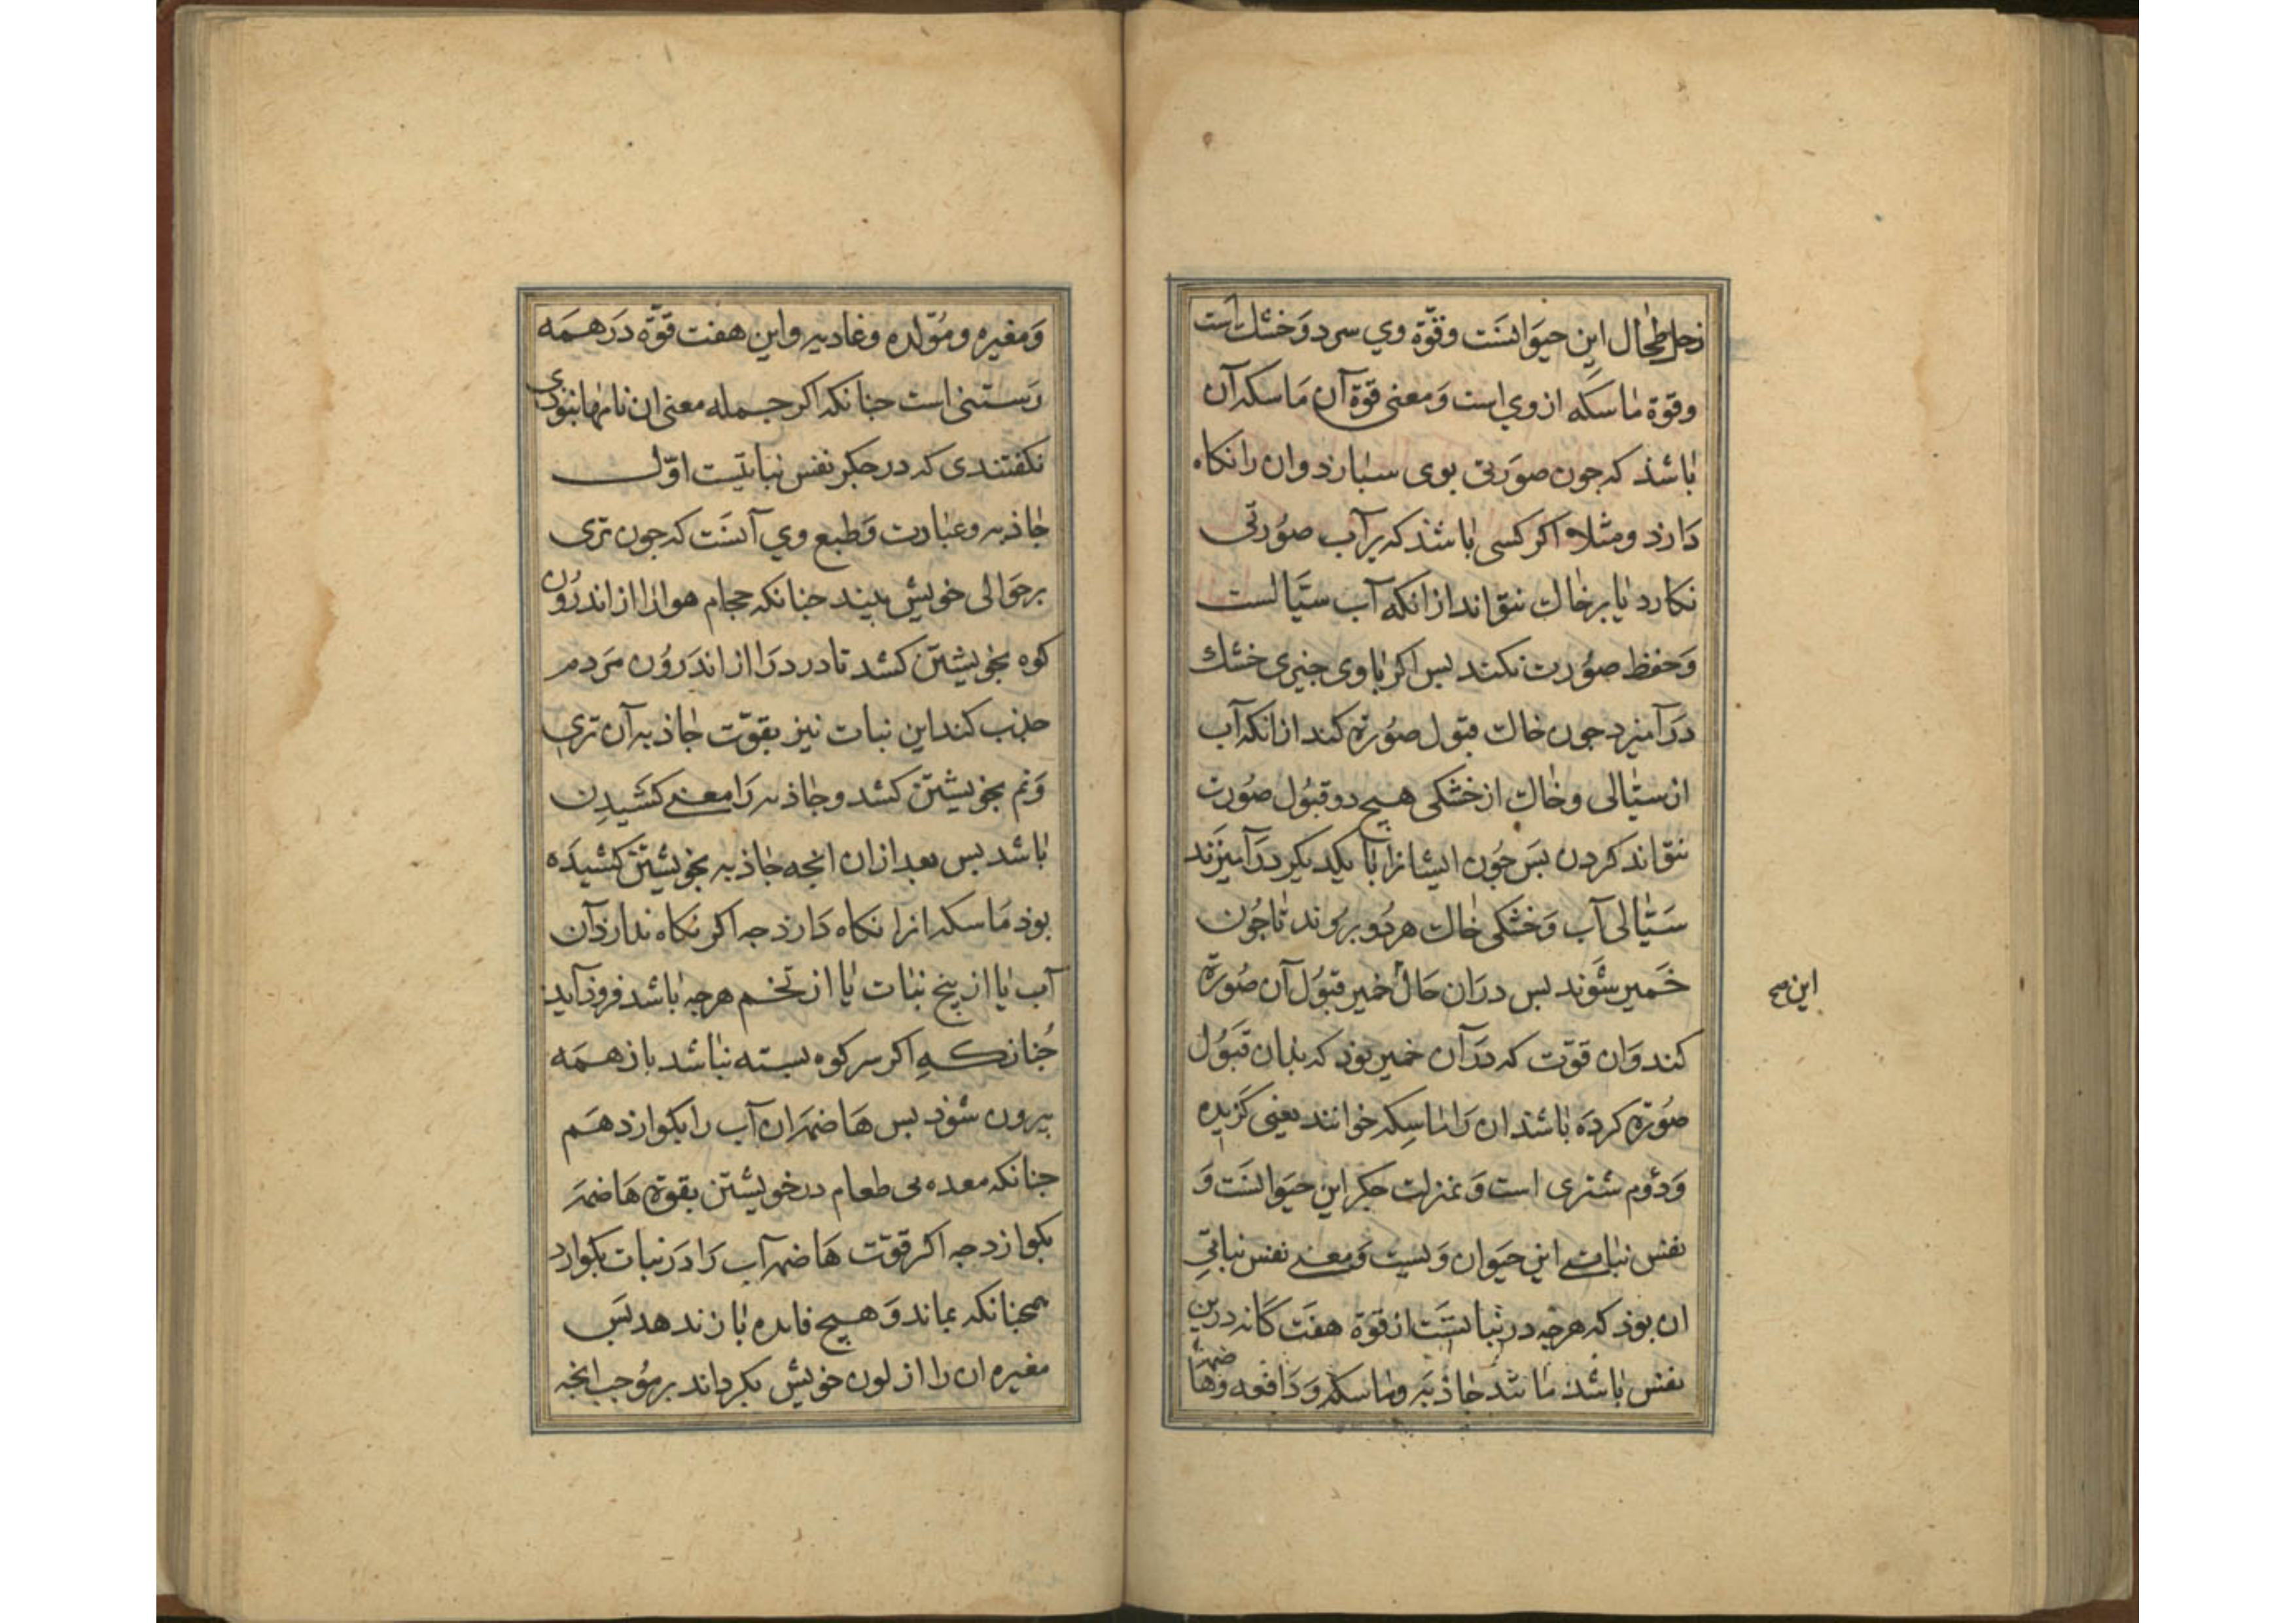 زحل طحال این حیوانست وقوّة وي سرد وَخشك است
وقوّة ماسكه از وي است وَمعنی قوّة آن مَاسكه آن
باشذ كه جون صوَرتی بوی سبارذ وان را نكاه
دَارذ ومثلا اكر كسی باشذ كه بر آب صوُرتی
نكارد یا بر خاك نتواند ازانكه آب سیّالست
وَحفظ صوُرت نكند بس اكر باوی جیزی خشك
درَآمیزد جون خاك قبول صوُرة كند ازانكه آب
از سیّالی وخاك از خشكی هیج دو قبوُل صوُرت
نتواند كردن بسَ جوُن ایشانرا با یكدیكر درَآمیزَند
سَیّالی آب وَخشكی خاك هردوُ بروند تا جوُن
خَمیر شَوند بس درَان حَال خمیر قبوُل آن صوُرة
كند وَان قوّت كه درَآن خمیر بوذ كه بدان قبَوُل
صوُرة كردَه باشذ ان رَا ماسِكه خوانند یعنی كَزیده
وَدوُم مشتری است وَبمنزلت جكر این حیوَانست وَ
نفس نباتی این حیَوان وَیست وَمعنی نفس نباتیِ
ان بوذ كه هرجه در نباتست از قوّة هفت كَانه درین
نفس باشذ مانند جاذبَه وماسكه وَدَافعه وَهاضمه
این صح
وَمغیره ومُوّلده وغادیه واین هفت قوّة درَهمَه
رَستنی است جنانكه اكر جمله معنی ان نامها نبوذی
نكفتندی كه در جكر نفس نباتیست اوّل
جاذبه وعبارت وَطبع وي آنست كه جون تری
برحوَالی خویش بیند جنانكه حجام هوا را از اندرُون
كوه بخویشتن كشد تا درد رَا از اندرَوُن مَردم
جذب كند این نبات نیز بقوّت جاذبه آن تری
وَنم بخویشتن كشد وجاذبه رَا معنی كشَیدِن
باشد بس بعد ازان انجه جاذبه بخویشتن كشیدَه
بوذ مَاسكه انرا نكاه دَارذ جه اكر نكاه ندارذ آن
آب یا از بیخ نبات یا از تخم هرجه باشد فروذ آید
جُنانكه اكر سر كوه بسته نباشد باز همَه
بیرون شوذ بس هَاضمه ان آب را بكوارد هَم
جنانكه معده بی طعام درخویشتن بقوة هَاضمَه
بكوازد جه اكر قوّت هَاضمه آب رَا درَ نبات بكوارد
همجنانكه بماند وَهیج فایده باز ندهد بسَ
مغیره ان را از لون خویش بكرداند بر موُجب انجه